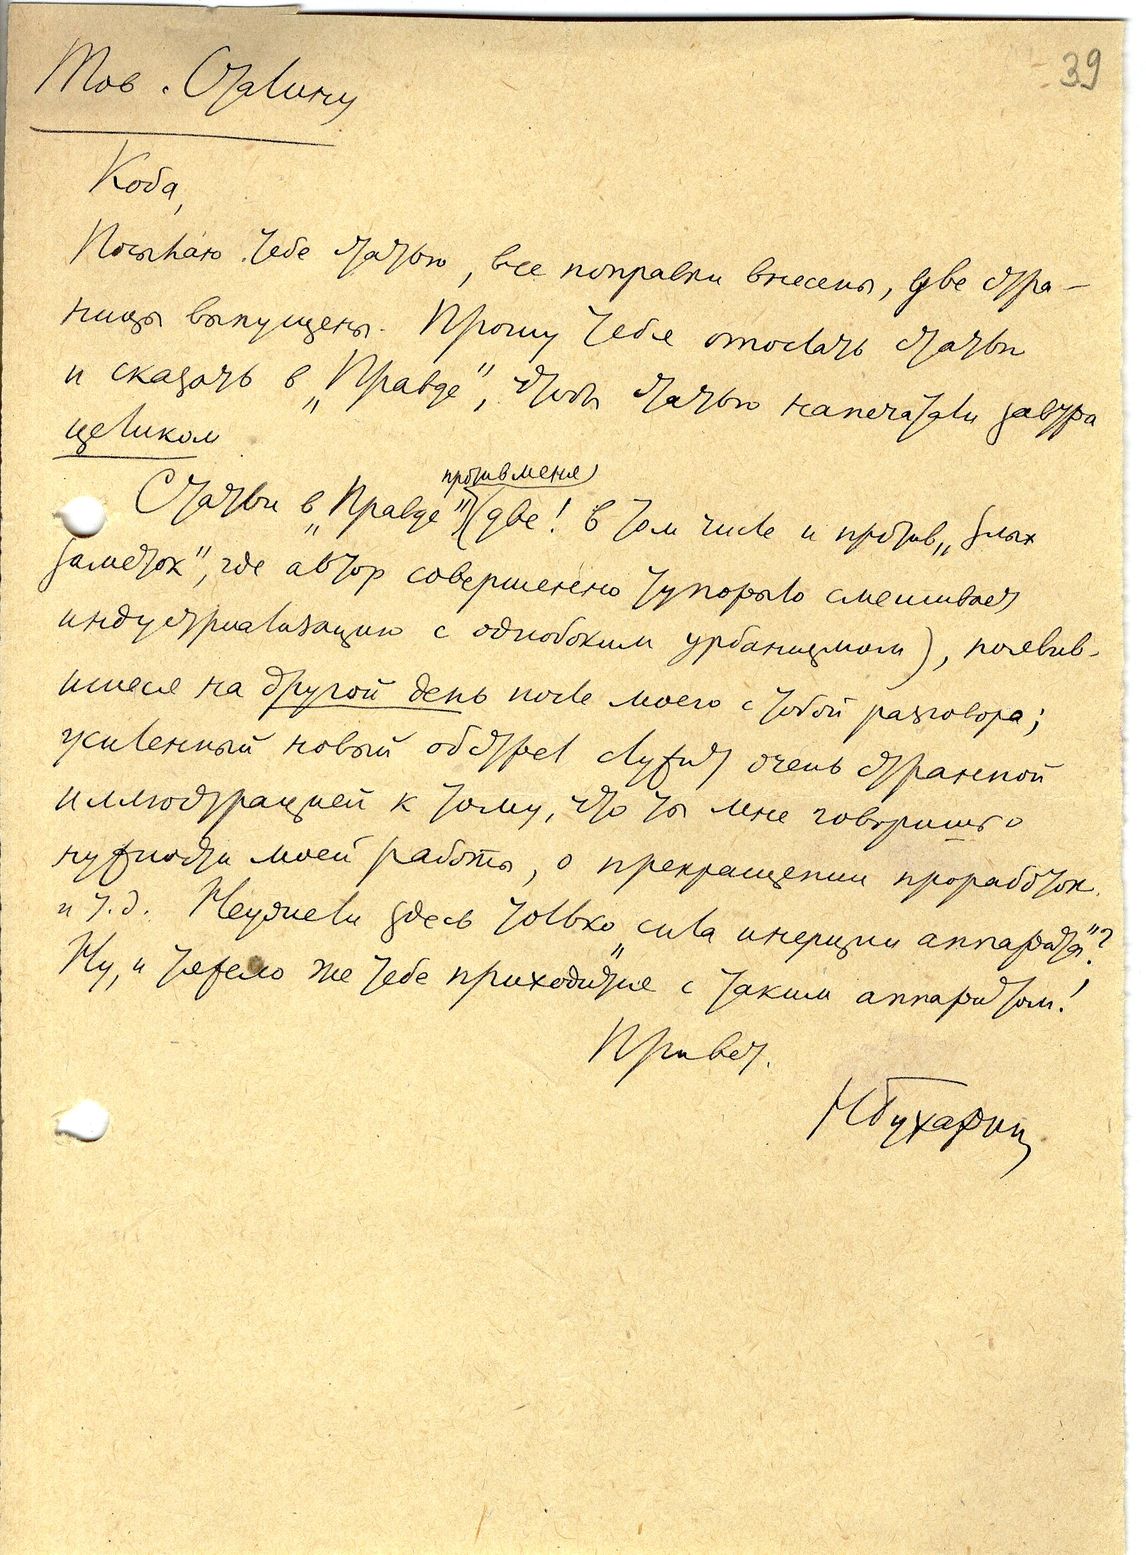 39
Тов. Сталину
Коба,
Посылаю тебе статью, все поправки внесены, две стра-
ницы выпущены. Прошу тебя отослать статью
и сказать в „Правде", чтобы статью напечатали завтра
целиком
против меня
Статьи в „Правде" (две! в том числе и против „злых
заметок", где автор совершенно тупорыло смешивает
индустриализацию с однобоким урбанизмом), появив-
шиеся на другой день после моего с тобой разговора;
усиленный новый обстрел служит очень странной
иллюстрацией к тому, что ты мне говоришь о
нужности моей работы, о прекращении проработок
и т.д. Неужели здесь только „сила инерции аппарата"?
Ну, и тяжело же тебе приходится с таким аппаратом!
Привет.
Н Бухарин